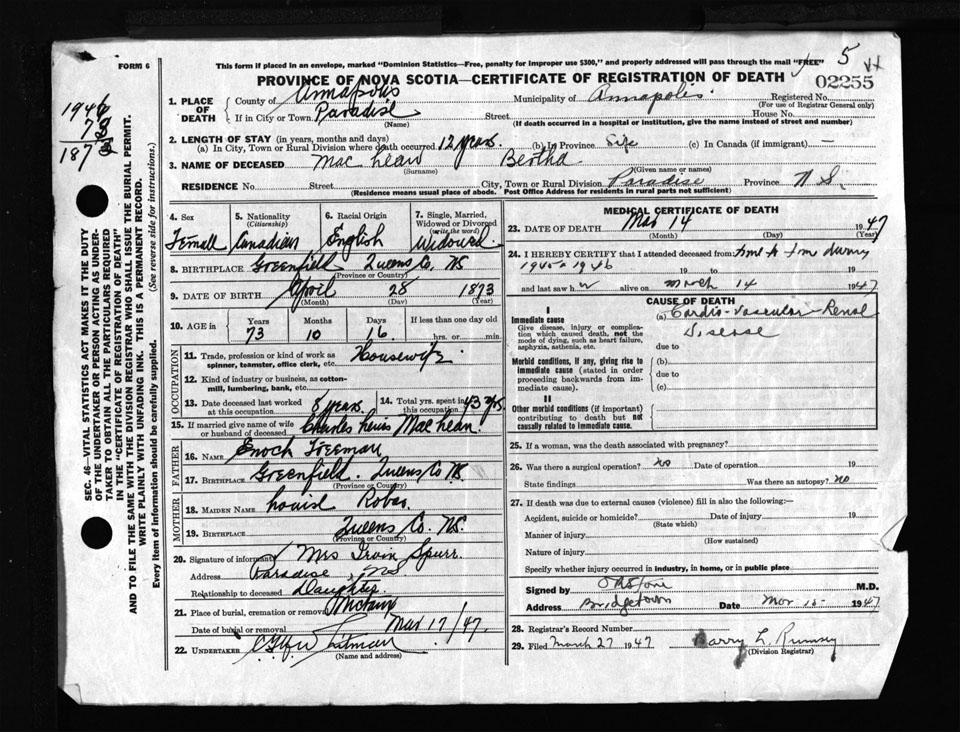 FORM 6
This form if placed in an envelope, marked "Dominion Statistics—Free, penalty for improper use $300," and properly addressed will pass through the mail "FREE"
5
PROVINCE OF NOVA SCOTIA—CERTIFICATE OF REGISTRATION OF DEATH
02255
1. PLACE OF DEATH
County of Annapolis Municipality of Annapolis. Registered No.
(For use of Registrar General only)
If in City or Town Paradise Street House No.
(Name) (If death occurred in a hospital or institution, give the name instead of street and number)
2. LENGTH OF STAY (in years, months and days)
(a) In City, Town or Rural Division where death occurred 12 years. (b) In Province Life (c) In Canada (if immigrant) —
3. NAME OF DECEASED Mac Lean Bertha
(Surname) (Given name or names)
RESIDENCE No. Street City, Town or Rural Division Paradise Province N.S.
(Residence means usual place of abode. Post Office Address for residents in rural parts not sufficient)
4. Sex
Female
5. Nationality
(Citizenship)
Canadian
6. Racial Origin
English
7. Single, Married, Widowed or Divorced
(write the word)
Widowed
8. BIRTHPLACE Greenfield Queens Co. NS
(Province or Country)
9. DATE OF BIRTH April 28 1873
(Month) (Day) (Year)
10. AGE in Years Months Days If less than one day
73 10 16 hrs. or min.
OCCUPATION
11. Trade, profession or kind of work as spinner, teamster, office clerk, etc. Housewife
12. Kind of industry or business, as cotton-mill, lumbering, bank, etc.
13. Date deceased last worked at this occupation 8 years.
14. Total yrs. spent in this occupation 43 yrs.
15. If married give name of wife or husband of deceased Charles Lewis MacLean.
FATHER
16. Name Enoch Freeman
17. Birthplace Greenfield. Queens Co N.S.
(Province or Country)
MOTHER
18. MAIDEN NAME Louise
19. BIRTHPLACE Queens Co. NS.
(Province or Country)
20. Signature of informant Mrs Irvin Spurr.
Address Paradise, NS
Relationship to deceased Daughter
21. Place of burial, cremation or removal
Date of burial or removal Mar 17/47.
22. UNDERTAKER
(Name and address)
MEDICAL CERTIFICATE OF DEATH
23. DATE OF DEATH Mar 14 1947
(Month) (Day) (Year)
24. I HEREBY CERTIFY that I attended deceased from:
1945 1946 19 to 19
and last saw h alive on March 14 1947
CAUSE OF DEATH
I
Immediate cause
Give disease, injury or complication which caused death, not the mode of dying, such as heart failure, asphyxia, asthenia, etc.
(a) Cardio-Vascular-Renal
Disease
due to
Morbid conditions, if any, giving rise to immediate cause (stated in order proceeding backwards from immediate cause).
(b)
due to
(c)
II
Other morbid conditions (if important) contributing to death but not causally related to immediate cause.
25. If a woman, was the death associated with pregnancy?
26. Was there a surgical operation? no Date of operation 19
State findings Was there an autopsy? no
27. If death was due to external causes (violence) fill in also the following:—
Accident, suicide or homicide? Date of injury 19
(State which)
Manner of injury
(How sustained)
Nature of injury
Specify whether injury occurred in industry, in home, or in public place
Signed by M.D.
Address Bridgetown Date Mar 15- 1947
28. Registrar's Record Number
29. Filed March 27 1947 Harry L. Rumsey
(Division Registrar)
SEC. 46—VITAL STATISTICS ACT MAKES IT THE DUTY
OF THE UNDERTAKER OR PERSON ACTING AS UNDER-
TAKER TO OBTAIN ALL THE PARTICULARS REQUIRED
IN THE "CERTIFICATE OF REGISTRATION OF DEATH"
AND TO FILE THE SAME WITH THE DIVISION REGISTRAR WHO SHALL ISSUE THE BURIAL PERMIT.
WRITE PLAINLY WITH UNFADING INK. THIS IS A PERMANENT RECORD.
Every item of information should be carefully supplied. (See reverse side for instructions.)